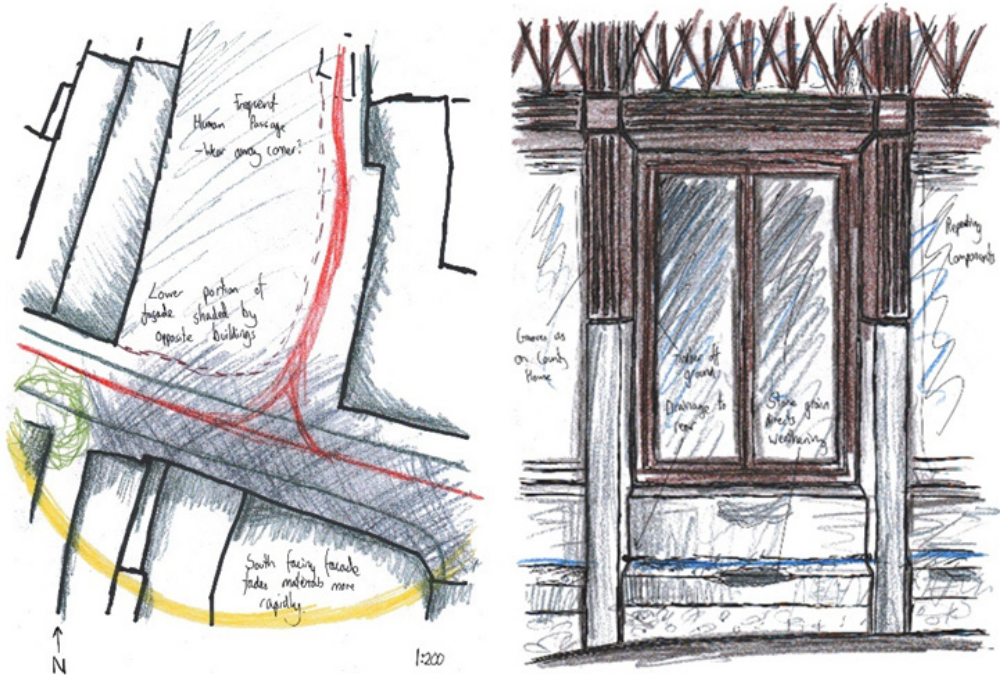 Frequent
Human Passage
-Wear away corner?
Lower portion of
façade shaded by
opposite buildings
South facing facade
fades materials more
rapidly.
N
1:200
Repeating
Components
Grooves as
on County
House
Timber off
ground
Drainage to
rear
Stone grain
weathering